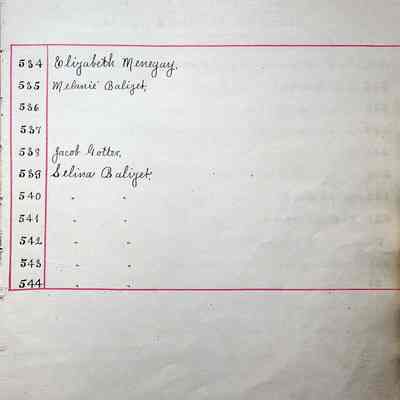 534 Elizabeth Menegay.
535 Melanie Balizet.
536
537
538 Jacob Gotter.
539 Selina Balizet.
540 " "
541 " "
542 " "
543 " "
544 " "